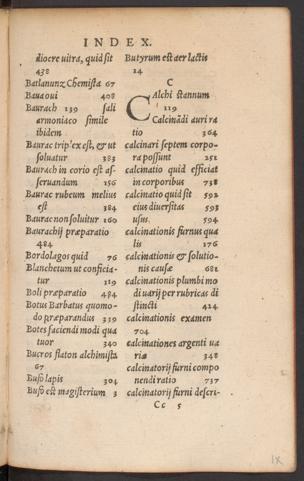 INDEX.
diocre uitra, quid sit
438
Batlanunz Chemista 67
Baua oui 408
Baurach 139 sali
armoniaco simile
ibidem
Baurac trip'ex est, & ut
soluatur 383
Baurach in corio est as-
seruandum 156
Baurac rubeum melius
est 384
Baurac non soluitur 160
Baurachij præparatio
484
Bordolagos quid 76
Blanchetum ut conficia-
tur 119
Boli præparatio 484
Botus Barbatus quomo-
do præparandus 339
Botes faciendi modi qua
tuor 340
Bucros flaton alchimista
67
Bufo lapis 304
Bufo est magisterium 3
Butyrum est aer lactis
24
C
CAlchi stannum
119
Calcinãdi auri ra
tio 364
calcinari septem corpo-
ra possunt 251
calcinatio quid efficiat
in corporibus 738
calcinatio quid sit 592
eius diuersitas 593
usus. 594
calcinationis furnus qua
lis 176
calcinationis & solutio-
nis causæ 681
calcinationis plumbi mo
di uarij per rubricas di
stincti 424
calcinationis examen
704
calcinationes argenti ua
riæ 348
calcinatorij furni compo
nendi ratio 737
calcinatorij furni descri-
Cc 5